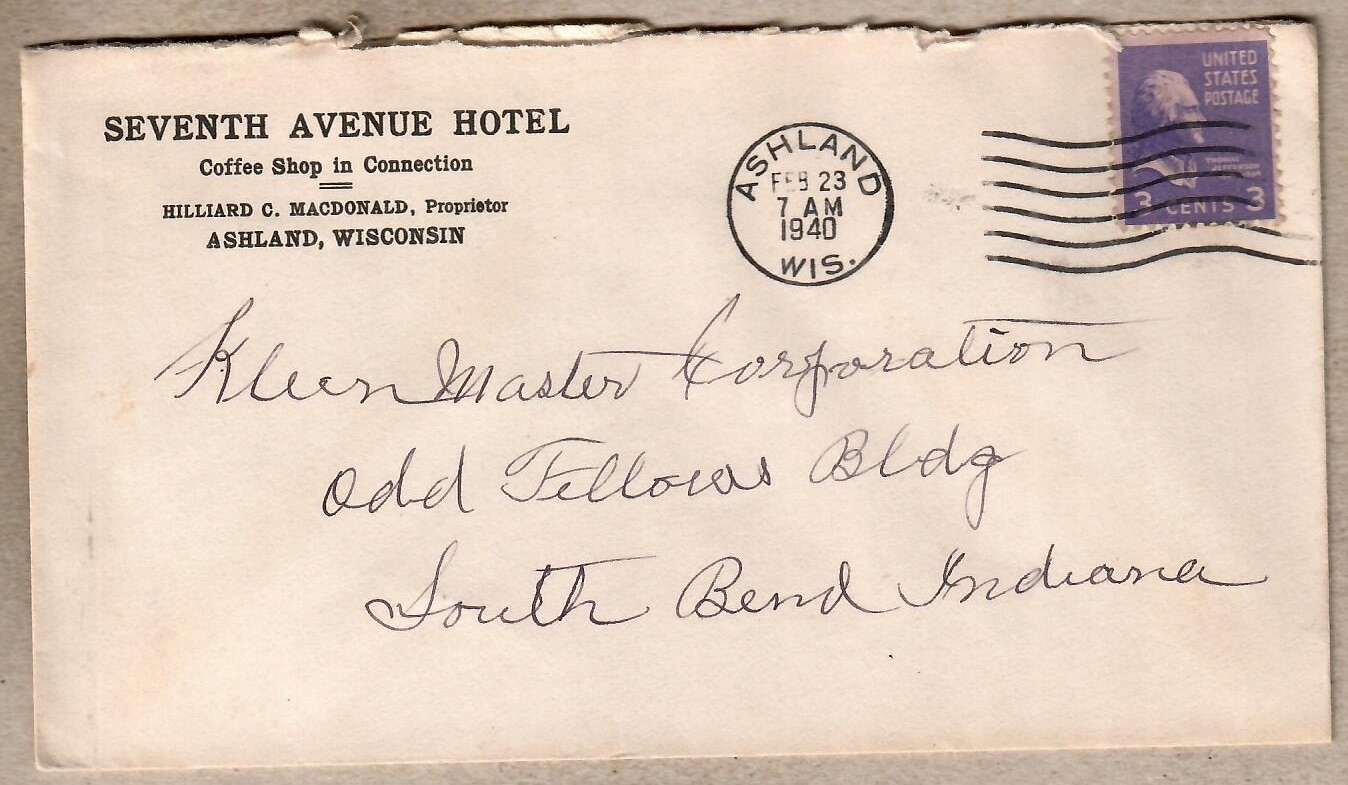 SEVENTH AVENUE HOTEL
Coffee Shop in Connection
HILLIARD C. MACDONALD, Proprietor
ASHLAND, WISCONSIN
ASHLAND
FEB 23
7 AM
1940
WIS.
UNITED
STATES
POSTAGE
THOMAS
JEFFERSON
3 CENTS 3
Kleen Master Corporation
Odd Fellows Bldg
South Bend Indiana